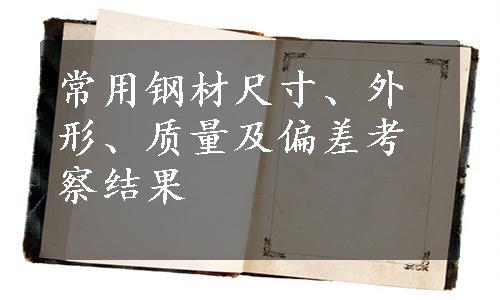 常用钢材尺寸、外
形、质量及偏差考
察结果